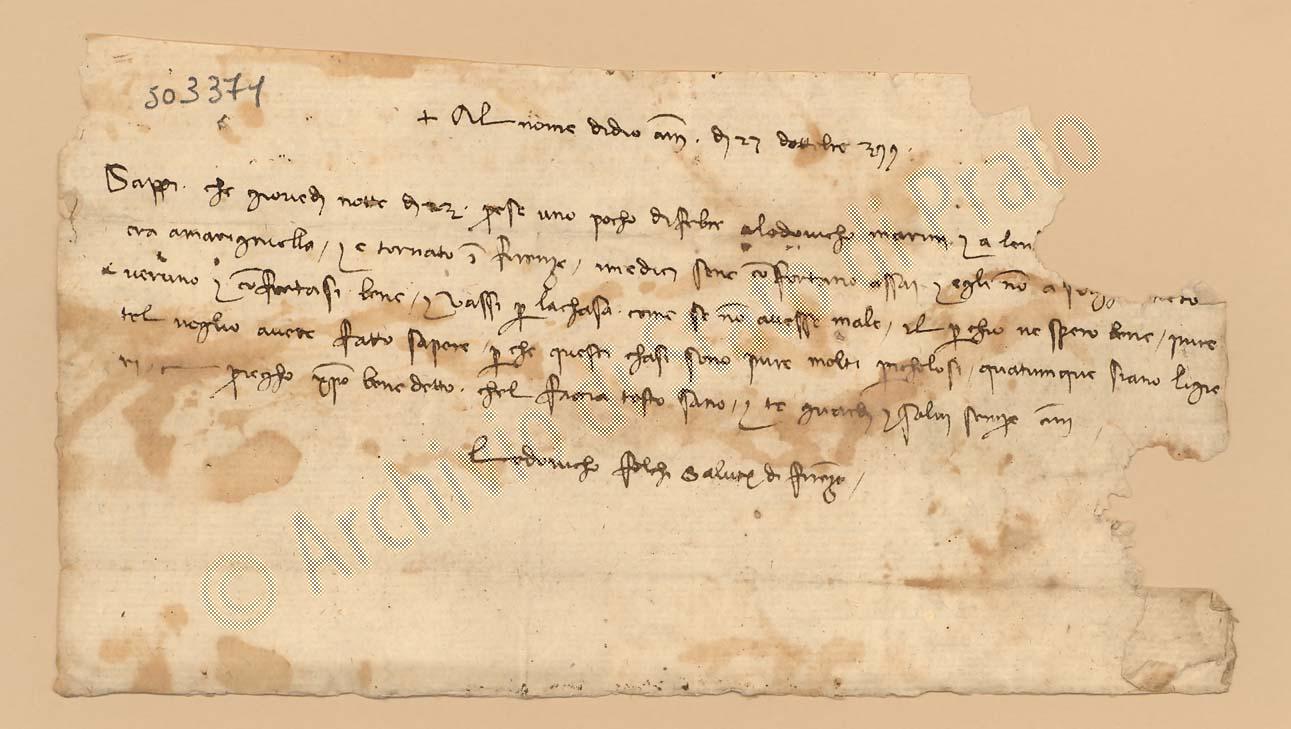 503371
+ Al nome di dio am̄. dì 27 d'ottobre 399.
Sappi. che giovedì notte dì 23. prese uno pocho di febre a Lodovicho Marini. e a
era a Marignuella / e è tornato ī Firenze / i medici sene cōfortano assai. e egli nō à
veruno e cōfortasi bene / e vassi p̱ la chasa. come se nō avesse male / il p̱chio ne spero bene / pure
tel voglio avere fatto sapere / p̱che questi chasi sono pure molti p̱icholosi / quatumque siano ligie
ri. priegho xp̄o benedetto. chel faccia tosto sano / e te guardi e salvi sempre am̄
Lodovicho salute di Firenze /
© Archivio di Stato di Prato